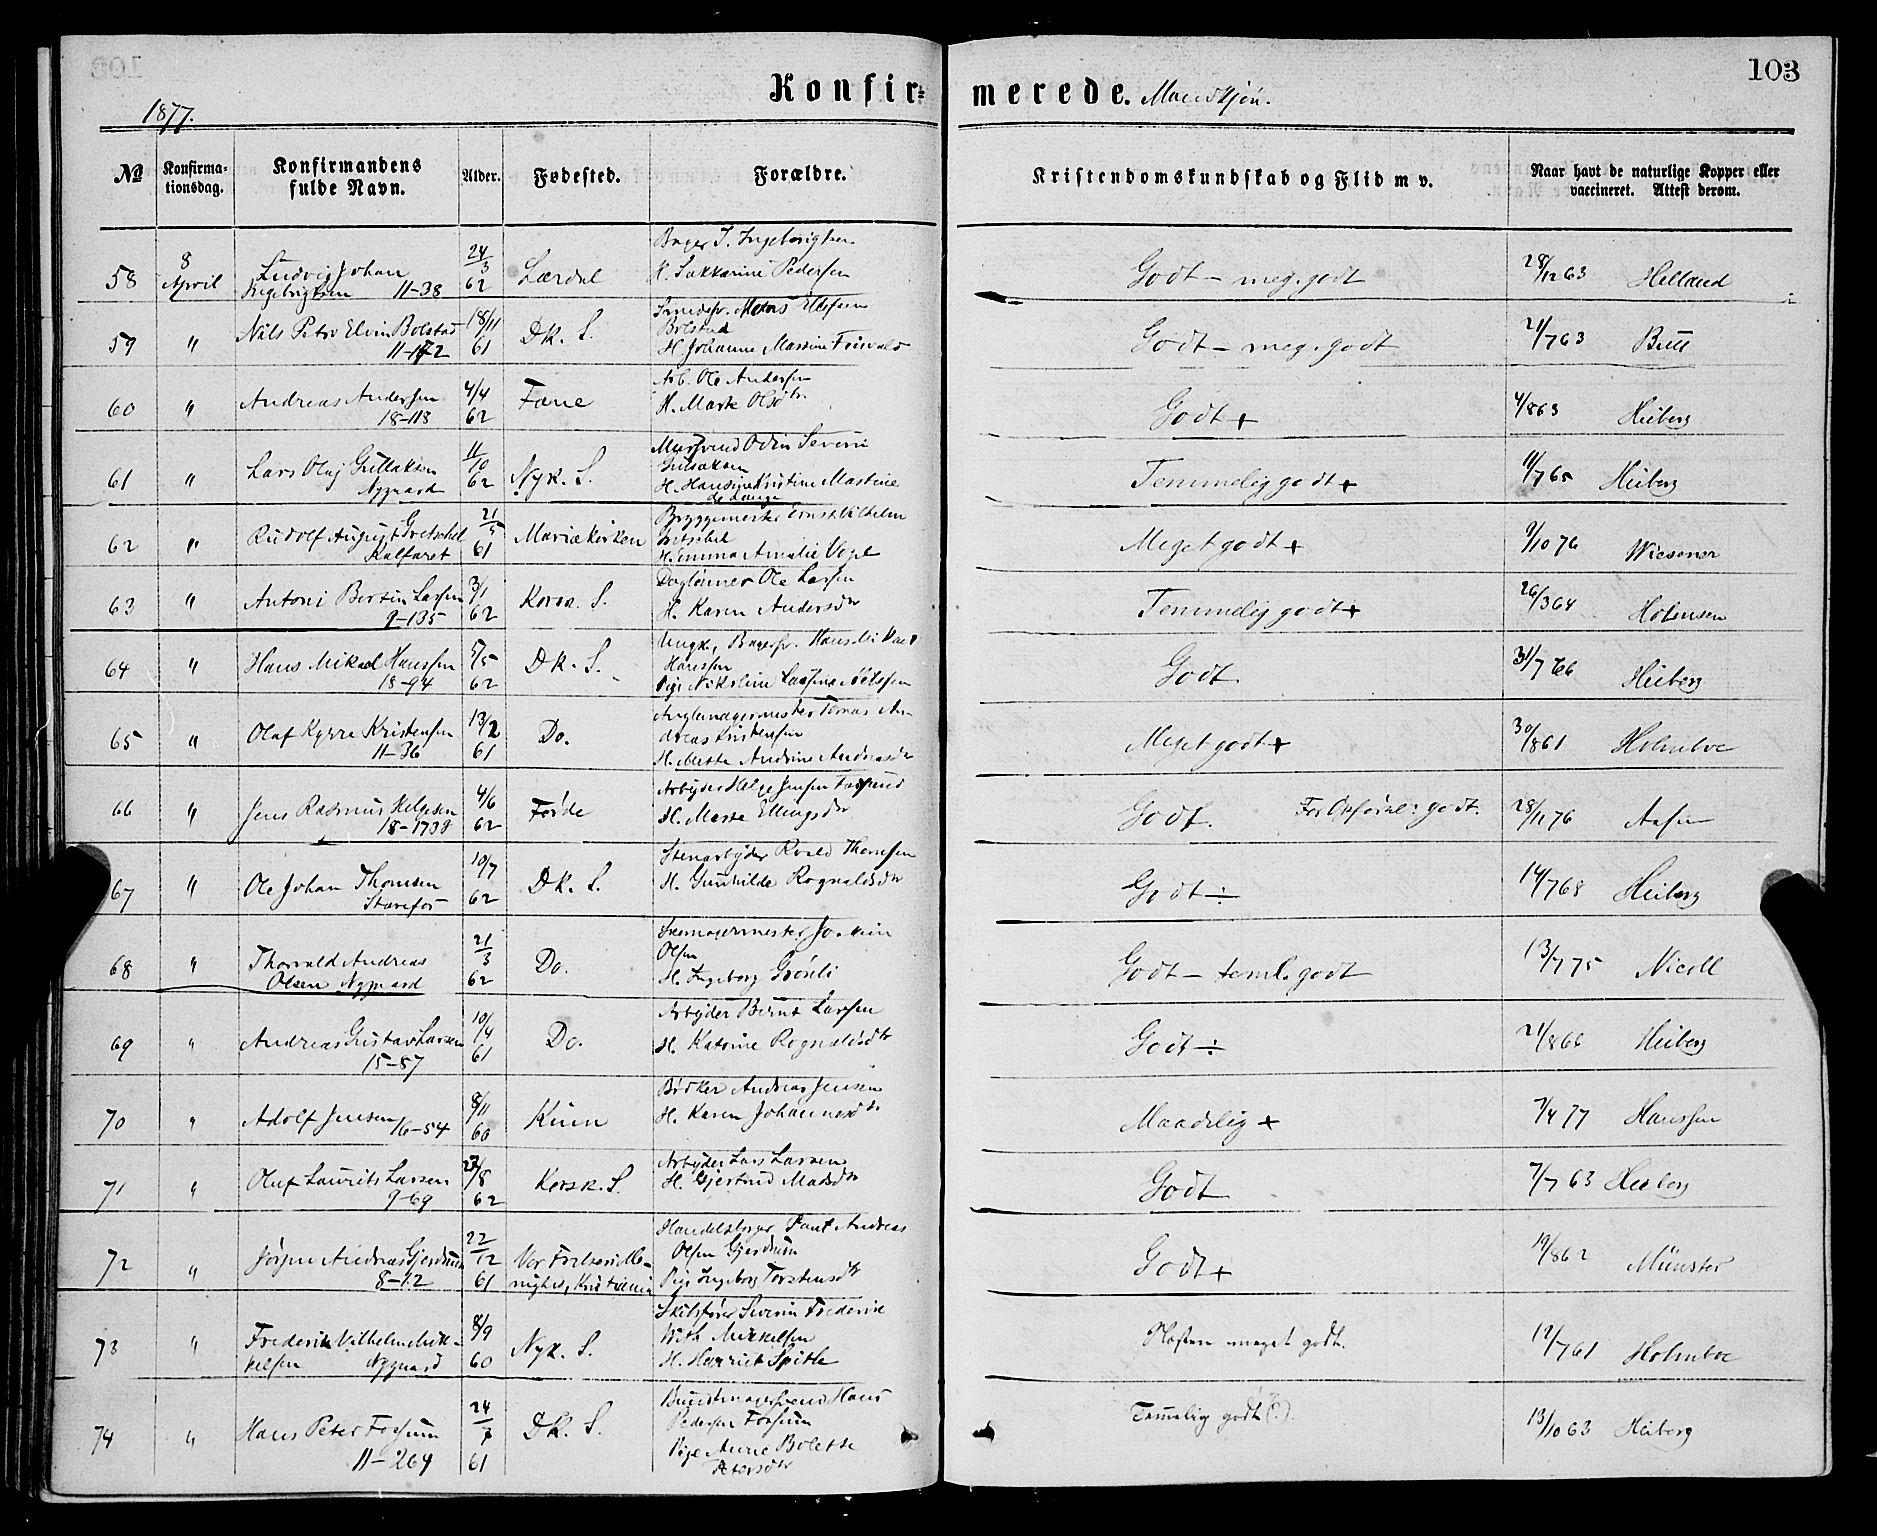 103
Konfirmerede. Mandkjøn.
1877.
№
Konfirmationsdag.
Konfirmandens fulde Navn.
Alder.
Fødested.
Forældre.
Kristendomskundskab og Flid m v.
Naar havt de naturlige Kopper eller vaccineret. Attest derom.
58 8 April Ludvig Johan Ingebrigtsen 11-38 24/3 62 Lærdal Bager J. Ingebrigtsen H. Sakkarine Pedersen Godt - meg. godt 28/12 63 Helland
59 " Nils Petr Elvin Bolstad 18/11 61 Dk. S. Mons Ellefsen Bolstad H. Johanne Martine Godt - meg. godt 21/7 63 Bull
60 " Andreas Andersen 18-113 4/4 62 Fane Arb. Ole Andersen H. Marte Olsdtr. Godt + 4/8 63 Heiberg
61 " Lars Olaj Gullaksen Nygaard 11/10 62 Nyk. S. Odin Severin Gullaksen H. Hansine Kristine Martine de Lange Temmelig godt + 11/7 65 Heiberg
62 " Rudolf August Gretschel Kalfaret 21/5 61 Mariækirken Bryggemester Ernst Vilhelm Gretschel H. Emma Amalie Vogel Meget godt + 9/10 76 Wiesener
63 " Antoni Bertin Larsen 9-135 3/1 62 Korsk. S. Daglønner Ole Larsen H. Karen Andersdtr Temmelig godt + 26/3 64 Holmsen
64 " Hans Mikael Hanssen 18-94 5/5 62 Dk. S. Ungk., Bagersv. Hans Mikael Hanssen Pige Nikoline Nilssen Godt 31/7 66 Heiberg
65 " Olaf Kyrre Kristensen 11-36 13/2 61 Do. Tomas Andreas Kristensen H. Mette Andrine Andreasdtr Meget godt + 30/8 61 Holmboe
66 " Jens Rasmus Helgesen 18-1708 4/6 62 Førde Arbeider Helge Jensen H. Marta Ellingsdtr Godt. For Opførsel: godt. 28/11 76
67 " Ole Johan Thomsen Starefos 10/7 62 Dk. S. Stenarbejder Roald Thomsen H. Gunhilde Rognaldsdtr Godt ÷ 14/7 68 Heiberg
68 " Thorvald Andreas Olsen Nygaard 21/3 62 Do. Skomagermester Joakim Olsen H. Ingeborg Grønli Godt - teml. godt 13/7 75 Nicoll
69 " Andreas Gustav Larsen 15-87 10/4 61 Do. Arbejder Bernt Larsen H. Katrine Rognaldsdtr Godt ÷ 21/8 66 Heiberg
70 " Adolf Jensen 16-54 8/11 60 Kinn Bødker Andreas Jensen H. Karen Johannesdtr Maadelig + 7/4 77 Hanssen
71 " Oluf Laurits Larsen 9-69 27/8 62 Korsk. S. Arbejder Lars Larsen H. Gjertrud Madsdtr Godt 7/7 63 Heiberg
72 " Jørgen Andreas Gjerdrum 8-12 22/12 61 Vor Frelsers Menighed, Kristiania Handelsborger Paul Andreas Olsen Gjerdrum Pige Ingeborg Torstensdtr Godt + 19/8 62 Münster
73 " Frederik Vilhelm Mikkelsen Nygaard 8/9 60 Nyk. S. Skibsfører Severin Frederik With Mikkelsen H. Harriet Spitle Næsten meget godt. 12/7 61 Holmboe
74 " Hans Peter Fossum 11-264 24/7 61 Dk. S. Buntmagersvend Hans Pedersen Fossum Pige Anne Bolette Petersdtr Temelig godt (?). 13/10 63 Heiberg